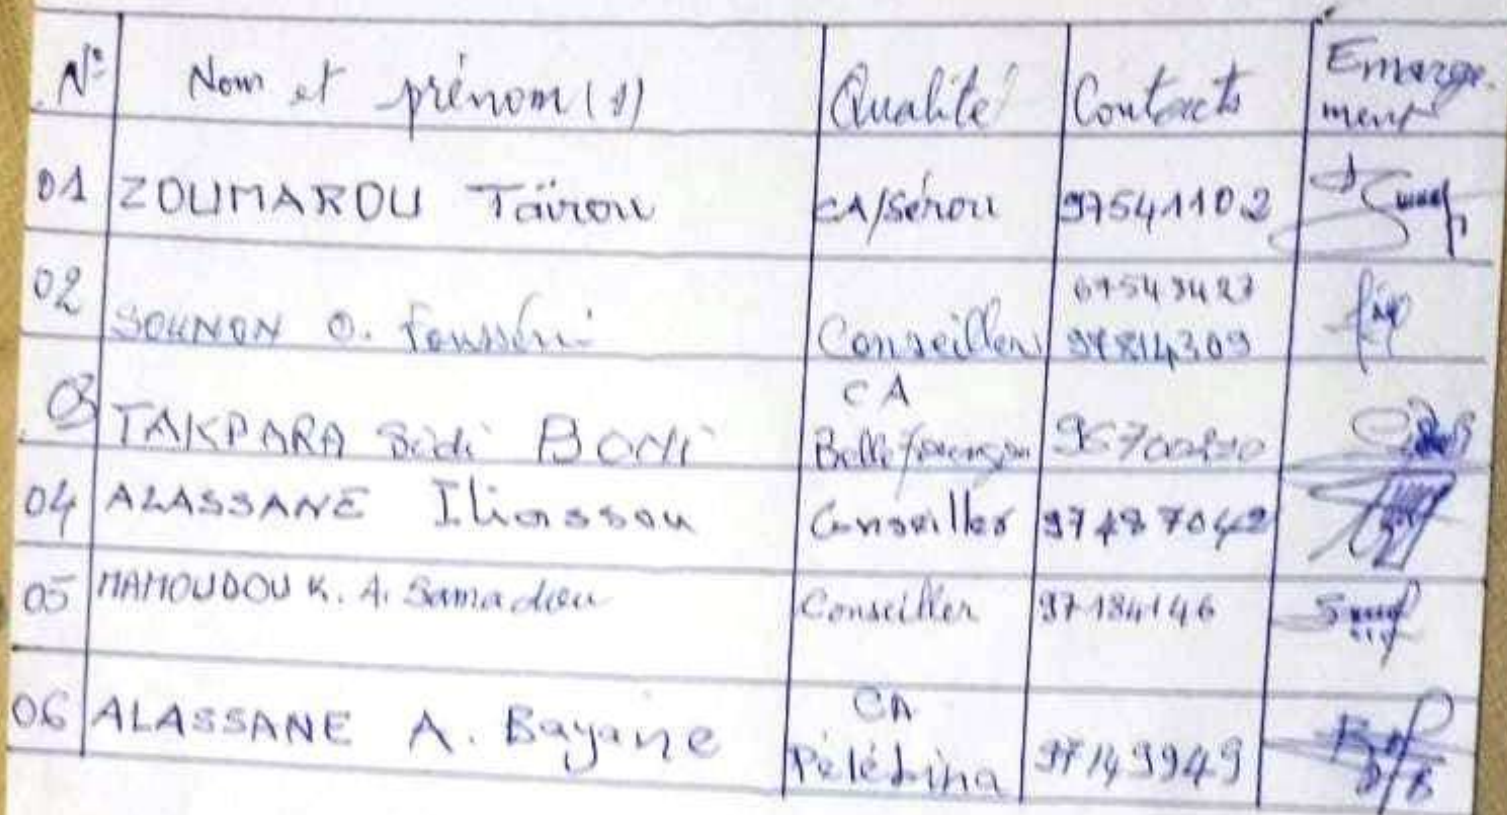 N° Nom et prénom(s) Qualité Contacts Emarge-
ment
01 ZOUMAROU Taïrou CA/Sérou 97541102
02 SOUNON O. Fousséni Conseiller 97814309
03 TAKPARA Sidi BONI CA
04 ALASSANE Iliassou Conseiller 97487042
05 MAMOUDOU K. A. Samadou Conseiller 97184146
06 ALASSANE A. Bayane CA
Pélébina 97149949